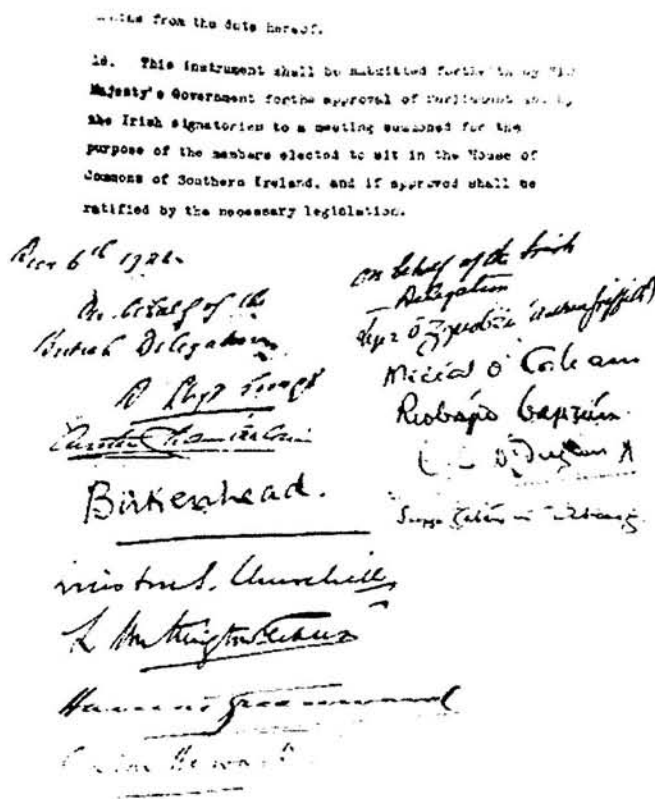 from the date hereof.
18. This instrument shall be submitted forthwith by His
Majesty's Government for the approval of Parliament and by
the Irish signatories to a meeting summoned for the
purpose of the members elected to sit in the House of
Commons of Southern Ireland, and if approved shall be
ratified by the necessary legislation.
Decr 6th 1921
On behalf of the
British Delegation
D Lloyd George
Austen Chamberlain
Birkenhead.
Winston S. Churchill
L Worthington Evans
Hamar Greenwood
Gordon Hewart
On behalf of the Irish
Delegation
Art Ó Gríobhtha (Arthur Griffith)
Micheál Ó Coileain
Riobárd Bartún